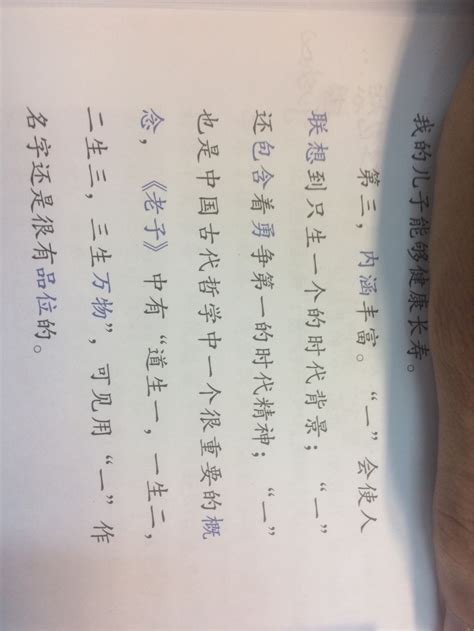 我的儿子能够健康长寿。
第三，内涵丰富。“一”会使人
联想到只生一个的时代背景；“一”
还包含着勇争第一的时代精神；“一”
也是中国古代哲学中一个很重要的概
念，《老子》中有“道生一，一生二，
二生三，三生万物”，可见用“一”作
名字还是很有品位的。